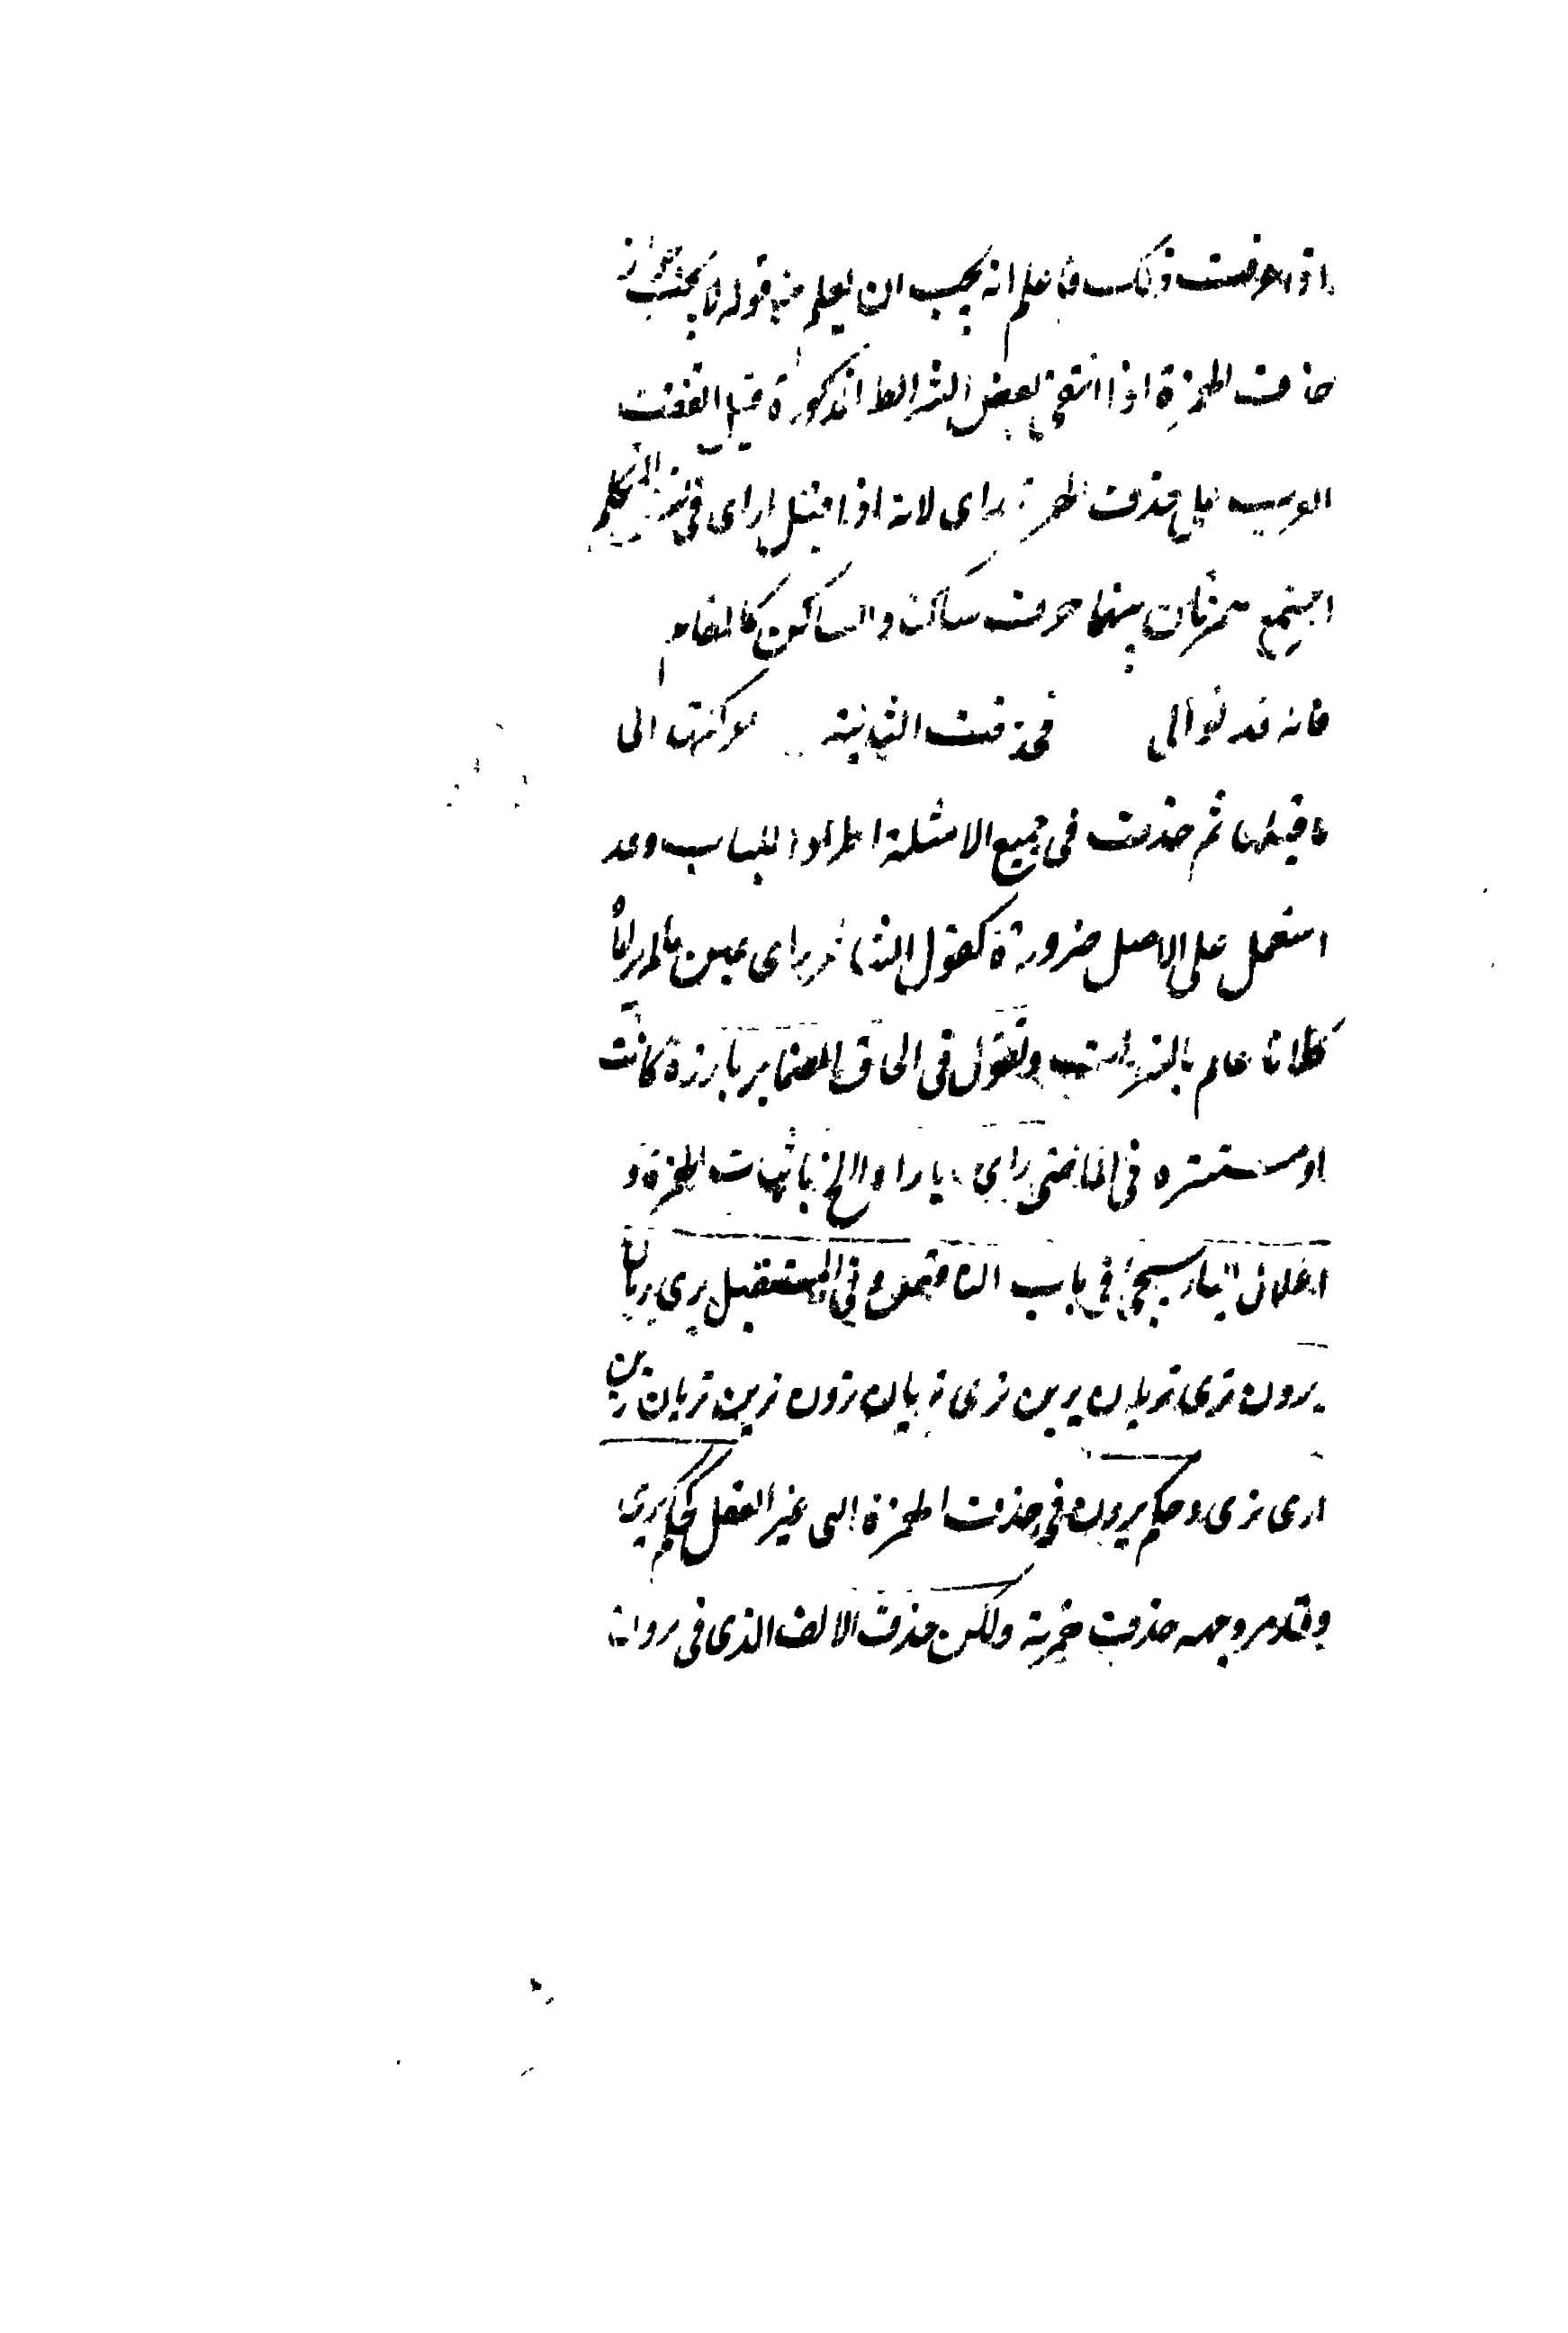 اذا عرفت ذلك فاعلم انه يجب ان يعلم من قوله لا يجب
حذف الهمزة اذا انتفى بعض الشرائط المذكورة قيل اتفقت
العرب على حذف الهمزة يراى لانه اذا قيل اراى فى المتكلم
اجتمع همزتان بينهما حرف ساكن والساكن كالمعدوم
فانه قد توالى فحذفت الثانية حركتها الى
ما قبلها ثم حذفت فى جميع الامثلة اطرادا للباب وقد
استعمل على الاصل ضرورة كقول الشاعر ارى عينى مالم تراياه
كلانا عالم بالترهات وتقول فى الحاق الضماير بارزة كانت
او مستتره فى الماضى راى رايا راوا الخ باثبات الهمزة و
اعلال الياء سيجئ فى باب الناقص وفى المستقبل يرى يريان
يرون ترى تريان يرين ترى تريان ترون ترين تريان ترين
ارى نرى وحكم يرون فى حذف الهمزة الى عين الفعل كحكم يرى
وقد مر وجهه حذف همزته ولكن حذف الالف الذى فى يرون